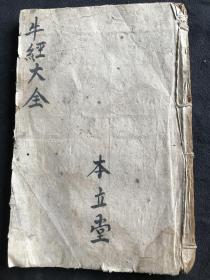 牛經大全
本立堂